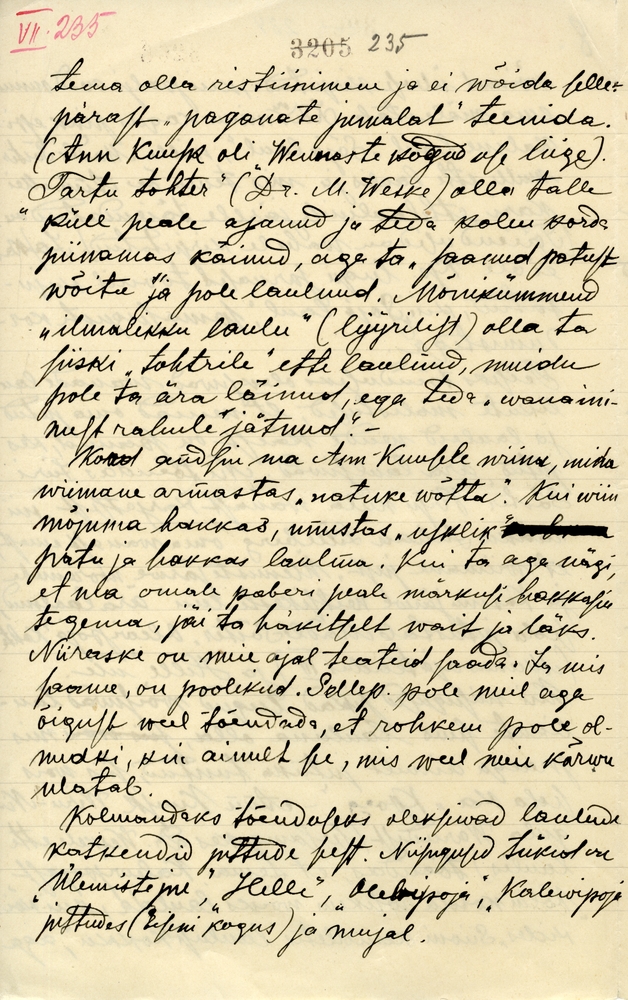 VII. 235
3205 235
tema olla ristiinimene ja ei wõida selle-
pärast „paganate jumalat“ teenida.
(Ann Kuusk oli „Wennaste kogud use liige).
„Tartu tohter“ (Dr. M. Weske) olla talle
küll peale ajanud ja teda kolm korda
piinamas käinud, aga ta „saanud patust
wõitu“ ja pole laulnud. Mõnikümmend
„ilmalikku laulu“ (lyyrilist) olla ta
siiski „tohtrile“ ette laulnud, muidu
pole ta ära läinud, ega teda „wanaini-
mest rahule jätnud.“ –
Kord andsin ma Ann Kuusele wiina, mida
wiimane armastas „natuke wõtta“. Kui wiin
mõjuma hakkas, unustas „usklik“
patu ja hakkas laulma. Kui ta aga nägi,
et ma omale paberi peale märkusi hakkasin
tegema, jäi ta häkitselt wait ja läks.
Niiraske on meie ajal teateid saada. Ja mis
saame, on poolikud. Sellep. pole meil aga
õigust weel tõendada, et rohkem pole ol-
nudki, kui ainult see, mis weel meie kõrwu
ulatab.
Kolmandaks tõenduseks oleksiwad laulude
katkendid juttude sest. Niisugused tükid on
„Ülemiste jne“, „Helle“, „Olewipoja“, „Kalewipoja
juttudes (Eiseni kogus) ja mujal.